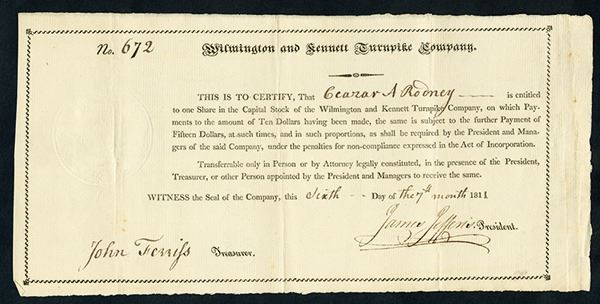 No. 672 Wilmington and Kennett Turnpike Company.
THIS IS TO CERTIFY, That Ceazar A Rodney is entitled
to one Share in the Capital Stock of the Wilmington and Kennett Turnpike Company, on which Pay-
ments to the amount of Ten Dollars having been made, the same is subject to the further Payment of
Fifteen Dollars, at such times, and in such proportions, as shall be required by the President and Mana-
gers of the said Company, under the penalties for non-compliance expressed in the Act of Incorporation.
Transferrable only in Person or by Attorney legally constituted, in the presence of the President,
Treasurer, or other Person appointed by the President and Managers to receive the same.
WITNESS the Seal of the Company, this Sixth Day of the 7th month 1811
James Jefferis President.
John Ferriss Treasurer.